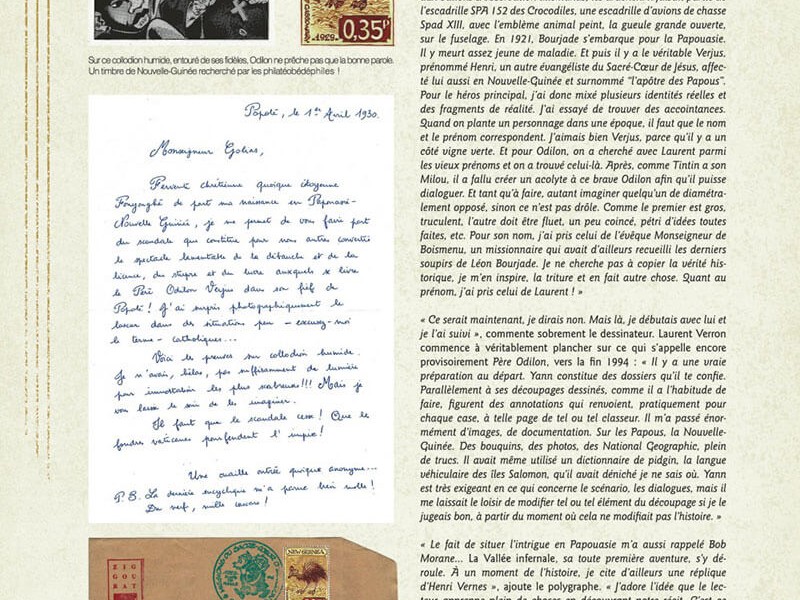 l'escadrille SPA 152 des Crocodiles, une escadrille d'avions de chasse
Spad XIII, avec l'emblème animal peint, la gueule grande ouverte,
sur le fuselage. En 1921, Bourjade s'embarque pour la Papouasie.
Il y meurt assez jeune de maladie. Et puis il y a le véritable Verjus,
prénommé Henri, un autre évangéliste du Sacré-Cœur de Jésus, affec-
té lui aussi en Nouvelle-Guinée et surnommé "l'apôtre des Papous".
Pour le héros principal, j'ai donc mixé plusieurs identités réelles et
des fragments de réalité. J'ai essayé de trouver des accointances.
Quand on plante un personnage dans une époque, il faut que le nom
et le prénom correspondent. J'aimais bien Verjus, parce qu'il y a un
côté vigne verte. Et pour Odilon, on a cherché avec Laurent parmi
les vieux prénoms et on a trouvé celui-là. Après, comme Tintin a son
Milou, il a fallu créer un acolyte à ce brave Odilon afin qu'il puisse
dialoguer. Et tant qu'à faire, autant imaginer quelqu'un de diamétra-
lement opposé, sinon ce n'est pas drôle. Comme le premier est gros,
truculent, l'autre doit être fluet, un peu coincé, pétri d'idées toutes
faites, etc. Pour son nom, j'ai pris celui de l'évêque Monseigneur de
Boismenu, un missionnaire qui avait d'ailleurs recueilli les derniers
soupirs de Léon Bourjade. Je ne cherche pas à copier la vérité his-
torique, je m'en inspire, la triture et en fait autre chose. Quant au
prénom, j'ai pris celui de Laurent ! »
« Ce serait maintenant, je dirais non. Mais là, je débutais avec lui et
je l'ai suivi », commente sobrement le dessinateur. Laurent Verron
commence à véritablement plancher sur ce qui s'appelle encore
provisoirement Père Odilon, vers la fin 1994 : « Il y a une vraie
préparation au départ. Yann constitue des dossiers qu'il te confie.
Parallèlement à ses découpages dessinés, comme il a l'habitude de
faire, figurent des annotations qui renvoient, pratiquement pour
chaque case, à telle page de tel ou tel classeur. Il m'a passé énor-
mément d'images, de documentation. Sur les Papous, la Nouvelle-
Guinée. Des bouquins, des photos, des National Geographic, plein
de trucs. Il avait même utilisé un dictionnaire de pidgin, la langue
véhiculaire des îles Salomon, qu'il avait déniché je ne sais où. Yann
est très exigeant en ce qui concerne le scénario, les dialogues, mais il
me laissait le loisir de modifier tel ou tel élément du découpage si je le
jugeais bon, à partir du moment où cela ne modifiait pas l'histoire. »
« Le fait de situer l'intrigue en Papouasie m'a aussi rappelé Bob
Morane... La Vallée infernale, sa toute première aventure, s'y dé-
roule. À un moment de l'histoire, je cite d'ailleurs une réplique
d'Henri Vernes », ajoute le polygraphe. « J'adore l'idée que le lec-
0.35F
Sur ce collodion humide, entouré de ses fidèles, Odilon ne prêche pas que la bonne parole.
Un timbre de Nouvelle-Guinée recherché par les philatéobédéphiles !
Popoti, le 1er Avril 1930.
Monseigneur Golias,
Fervente chrétienne quoique citoyenne
de part ma naissance en Papouasie-
Nouvelle Guinée, je me permet de vous faire part
du scandale que constitue pour nous autres convertis
le spectacle lamentable de la débauche et de la
licence, du stupre et du lucre auxquels se livre
le Père Odilon Verjus dans son fief de
Popoti ! J'ai surpris photographiquement le
lascar dans des situations peu - excusez-moi
le terme - catholiques...
Voici les preuves sur collodion humide.
Je n'avais, hélas, pas suffisamment de lumière
pour immortaliser les plus scabreux !!! Mais je
vous laisse le soin de les imaginer.
Il faut que le scandale cesse ! Que les
foudres vaticanes pourfendent l'impie !
Une ouaille outrée quoique anonyme...
P.S. La dernière encyclique m'a parue bien molle !
Du nerf, mille caciars !
ZIG
GOU
RAT
NEW GUINEA